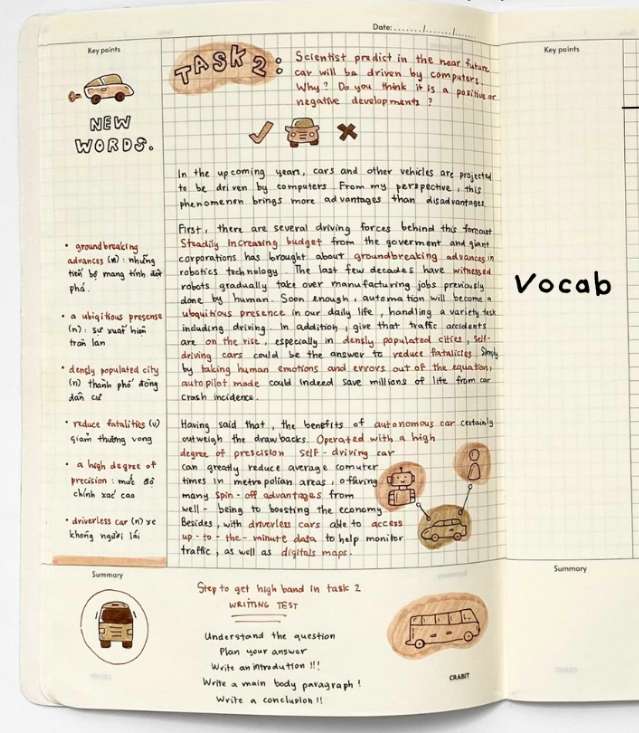 Date:......./......./.......
Key points
NEW
WORDS.
• groundbreaking
advances (n) : những
tiến bộ mang tính đột
phá.
• a ubiqitious presense
(n) : sự xuất hiện
tràn lan
• densly populated city
(n) thành phố đông
dân cư
• reduce fatalities (v)
giảm thương vong
• a high degree of
precision : mức độ
chính xác cao
• driverless car (n) xe
không người lái
TASK 2 :
Scientist predict in the near future
car will be driven by computers.
Why? Do you think it is a positive or
negative developments ?
In the upcoming years, cars and other vehicles are projected
to be driven by computers. From my perspective, this
phenomenon brings more advantages than disadvantages.
First, there are several driving forces behind this forecast
Steadily increasing budget from the goverment and giant
corporations has brought about groundbreaking advances in
robotics technology. The last few decades have witnessed
robots gradually take over manufacturing jobs previously
done by human. Soon enough, automation will become a
ubquitious presence in our daily life, handling a variety task
including driving. In addition, give that traffic accidents
are on the rise, especially in densly populated cities, self-
driving cars could be the answer to reduce fatalities. Simply
by taking human emotions and errors out of the equation,
autopilot made could indeed save millions of life from car
crash incidence.
Having said that, the benefits of autonomous car certainly
outweigh the drawbacks. Operated with a high
degree of prescision self-driving car
can greatly reduce average comuter
times in metropolian areas, offering
many spin-off advantages from
well-being to boosting the economy
Besides, with driverless cars able to access
up-to-the-minute data to help monitor
traffic, as well as digitals maps.
Key points
Vocab
Summary
Step to get high band in task 2
WRITING TEST
Understand the question
Plan your answer
Write an introdution !!!
Write a main body paragraph !
Write a conclusion !!
CRABIT
Summary